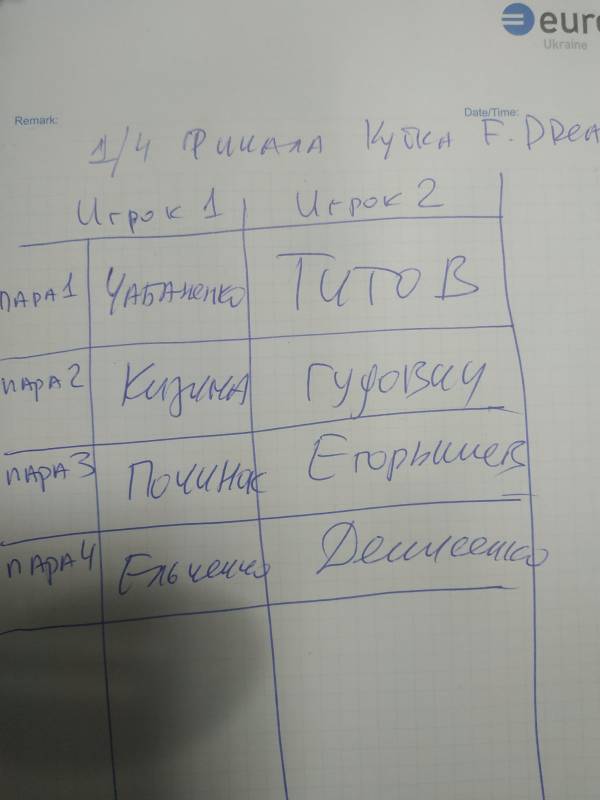 euro
Ukraine
Remark:
Date/Time:
1/4 Финала Кубка F. DREA
Игрок 1 Игрок 2
ПАРА 1 ЧАБАНЕНКО ТИТОВ
ПАРА 2 Кизина Гудович
ПАРА 3 Починок Егорышев
ПАРА 4 Ельченко Денисенко